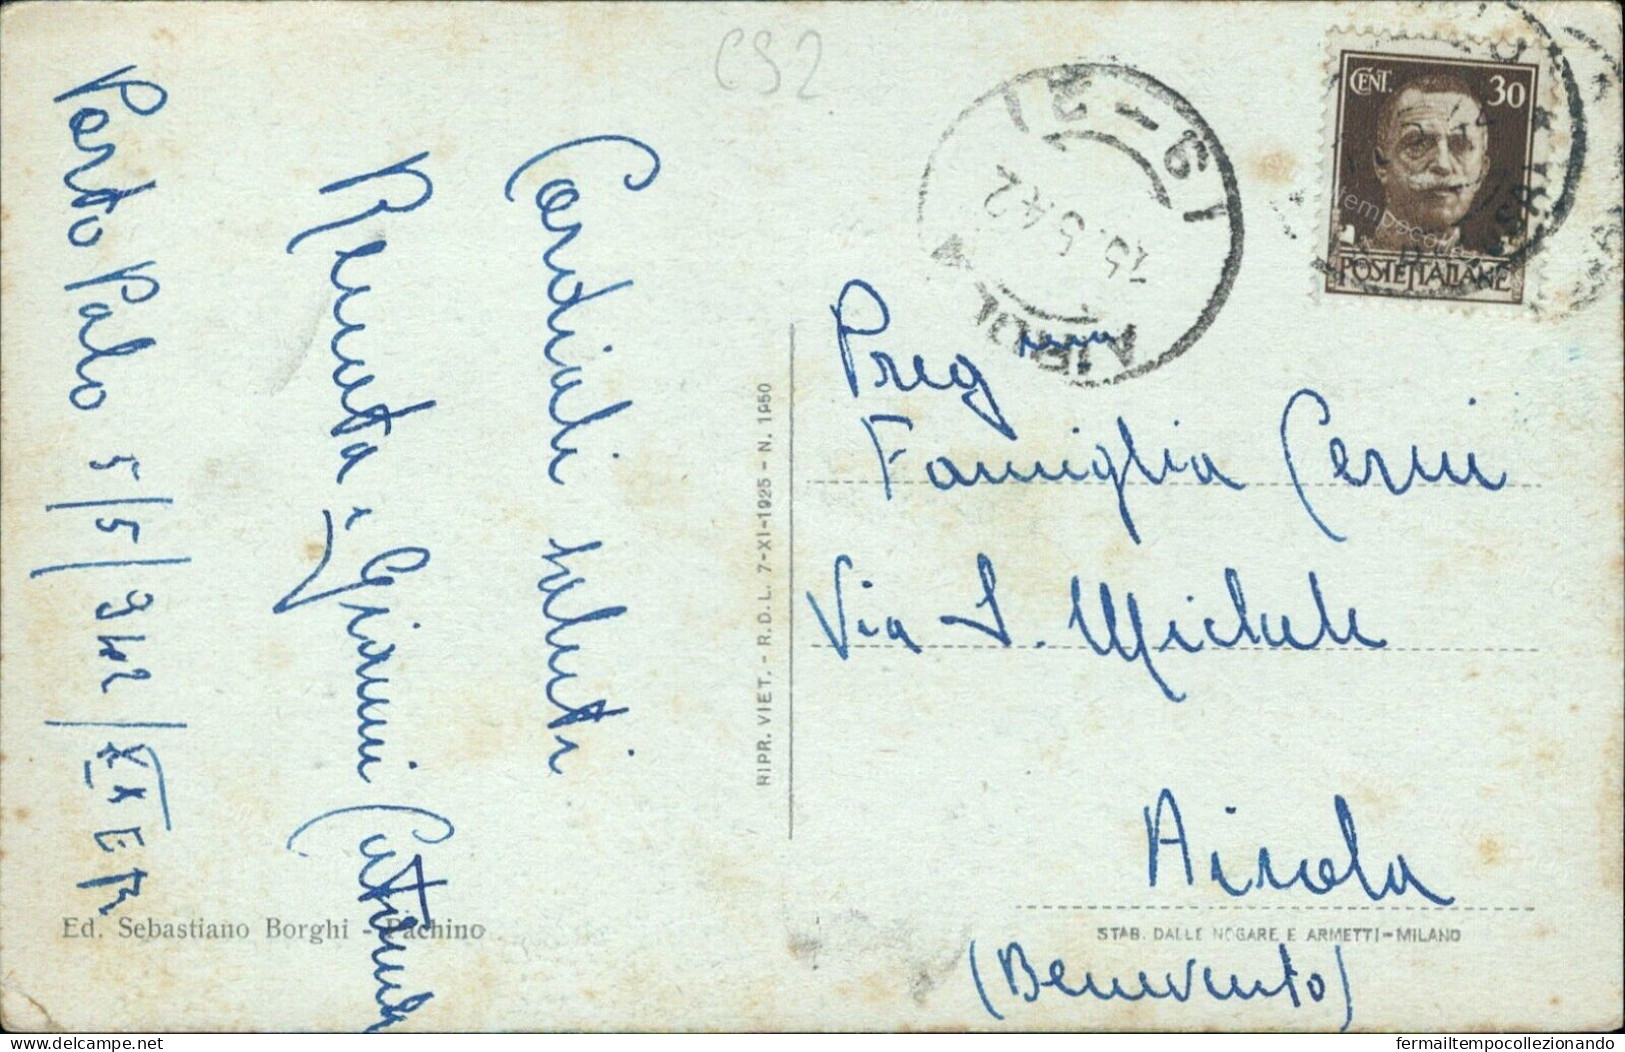 CS2
Porto Palo 5/5/942/XX E F
Cordiali saluti
Renata e Gianni
Ed. Sebastiano Borghi - Pachino
RIPR. VIET. - R.D.L. 7-XI-1925 - N. 1950
19-21
5.42
AIROLA
CENT. 30
POSTE ITALIANE
Preg
Famiglia Cerini
Via S. Michele
Airola
(Benevento)
STAB. DALLE NOGARE E ARMETTI-MILANO
fermailtempocollezionando